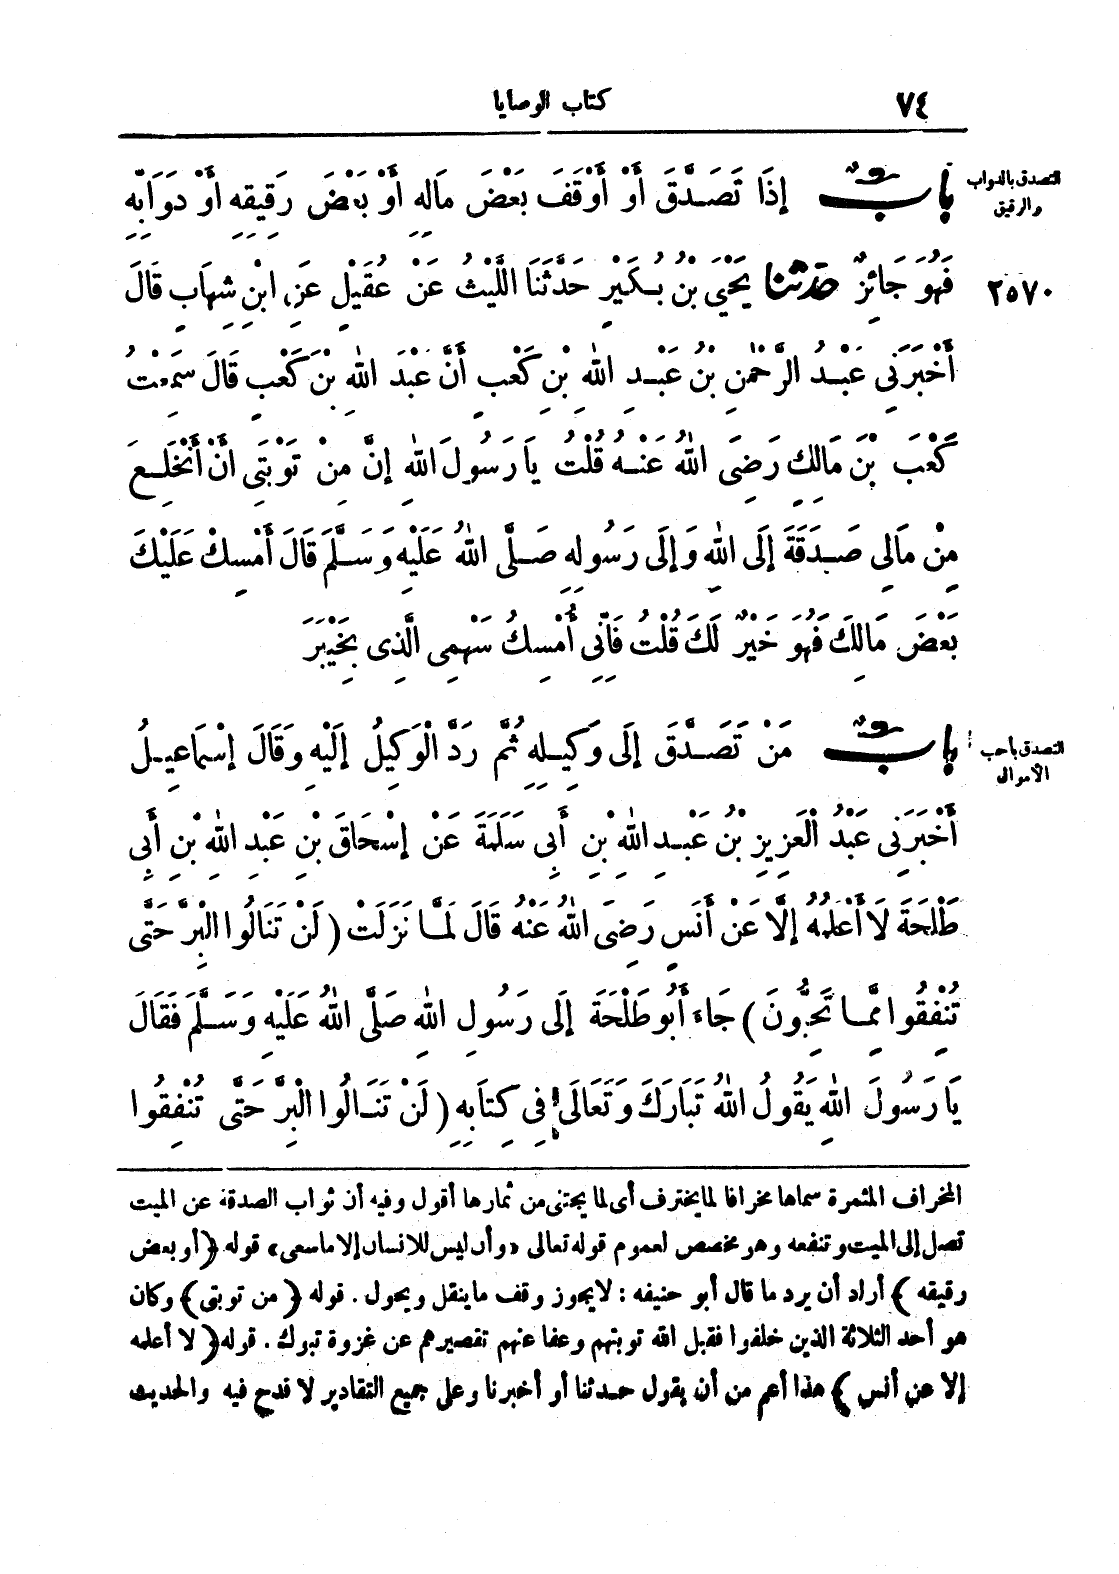 ٧٤
كتاب الوصايا
التصدق بالدواب
والرقيق
بَابٌ إِذَا تَصَدَّقَ أَوْ أَوْقَفَ بَعْضَ مَالِهِ أَوْ بَعْضَ رَقِيقِهِ أَوْ دَوَابِّهِ
٢٥٧٠
فَهُوَ جَائِزٌ حَدَّثَنَا يَحْيَى بْنُ بُكَيْرٍ حَدَّثَنَا اللَّيْثُ عَنْ عُقَيْلٍ عَنِ ابْنِ شِهَابٍ قَالَ
أَخْبَرَنِي عَبْدُ الرَّحْمٰنِ بْنُ عَبْدِ اللّٰهِ بْنِ كَعْبٍ أَنَّ عَبْدَ اللّٰهِ بْنَ كَعْبٍ قَالَ سَمِعْتُ
كَعْبَ بْنَ مَالِكٍ رَضِيَ اللّٰهُ عَنْهُ قُلْتُ يَا رَسُولَ اللّٰهِ إِنَّ مِنْ تَوْبَتِي أَنْ أَنْخَلِعَ
مِنْ مَالِي صَدَقَةً إِلَى اللّٰهِ وَإِلَى رَسُولِهِ صَلَّى اللّٰهُ عَلَيْهِ وَسَلَّمَ قَالَ أَمْسِكْ عَلَيْكَ
بَعْضَ مَالِكَ فَهُوَ خَيْرٌ لَكَ قُلْتُ فَإِنِّي أُمْسِكُ سَهْمِي الَّذِي بِخَيْبَرَ
التصدق بأحب
الأموال
بَابٌ مَنْ تَصَدَّقَ إِلَى وَكِيلِهِ ثُمَّ رَدَّ الْوَكِيلُ إِلَيْهِ وَقَالَ إِسْمَاعِيلُ
أَخْبَرَنِي عَبْدُ الْعَزِيزِ بْنُ عَبْدِ اللّٰهِ بْنِ أَبِي سَلَمَةَ عَنْ إِسْحَاقَ بْنِ عَبْدِ اللّٰهِ بْنِ أَبِي
طَلْحَةَ لَا أَعْلَمُهُ إِلَّا عَنْ أَنَسٍ رَضِيَ اللّٰهُ عَنْهُ قَالَ لَمَّا نَزَلَتْ (لَنْ تَنَالُوا الْبِرَّ حَتَّى
تُنْفِقُوا مِمَّا تُحِبُّونَ) جَاءَ أَبُو طَلْحَةَ إِلَى رَسُولِ اللّٰهِ صَلَّى اللّٰهُ عَلَيْهِ وَسَلَّمَ فَقَالَ
يَا رَسُولَ اللّٰهِ يَقُولُ اللّٰهُ تَبَارَكَ وَتَعَالَى فِي كِتَابِهِ (لَنْ تَنَالُوا الْبِرَّ حَتَّى تُنْفِقُوا
المخراف المثمرة سماها مخرافا لما يخترف أى لما يجتنى من ثمارها أقول وفيه أن ثواب الصدقة عن الميت
تصل إلى الميت وتنفعه وهو مخصص لعموم قوله تعالى «وأن ليس للانسان إلا ما سعى» قوله (أو بعض
رقيقه) أراد أن يرد ما قال أبو حنيفه: لا يجوز وقف ما ينقل ويحول. قوله (من توبتى) وكان
هو أحد الثلاثة الذين خلفوا فقبل الله توبتهم وعفا عنهم تقصيرهم عن غزوة تبوك. قوله (لا أعلمه
إلا عن أنس) هذا أعم من أن يقول حدثنا أو أخبرنا وعلى جميع التقادير لا قدح فيه والحديث